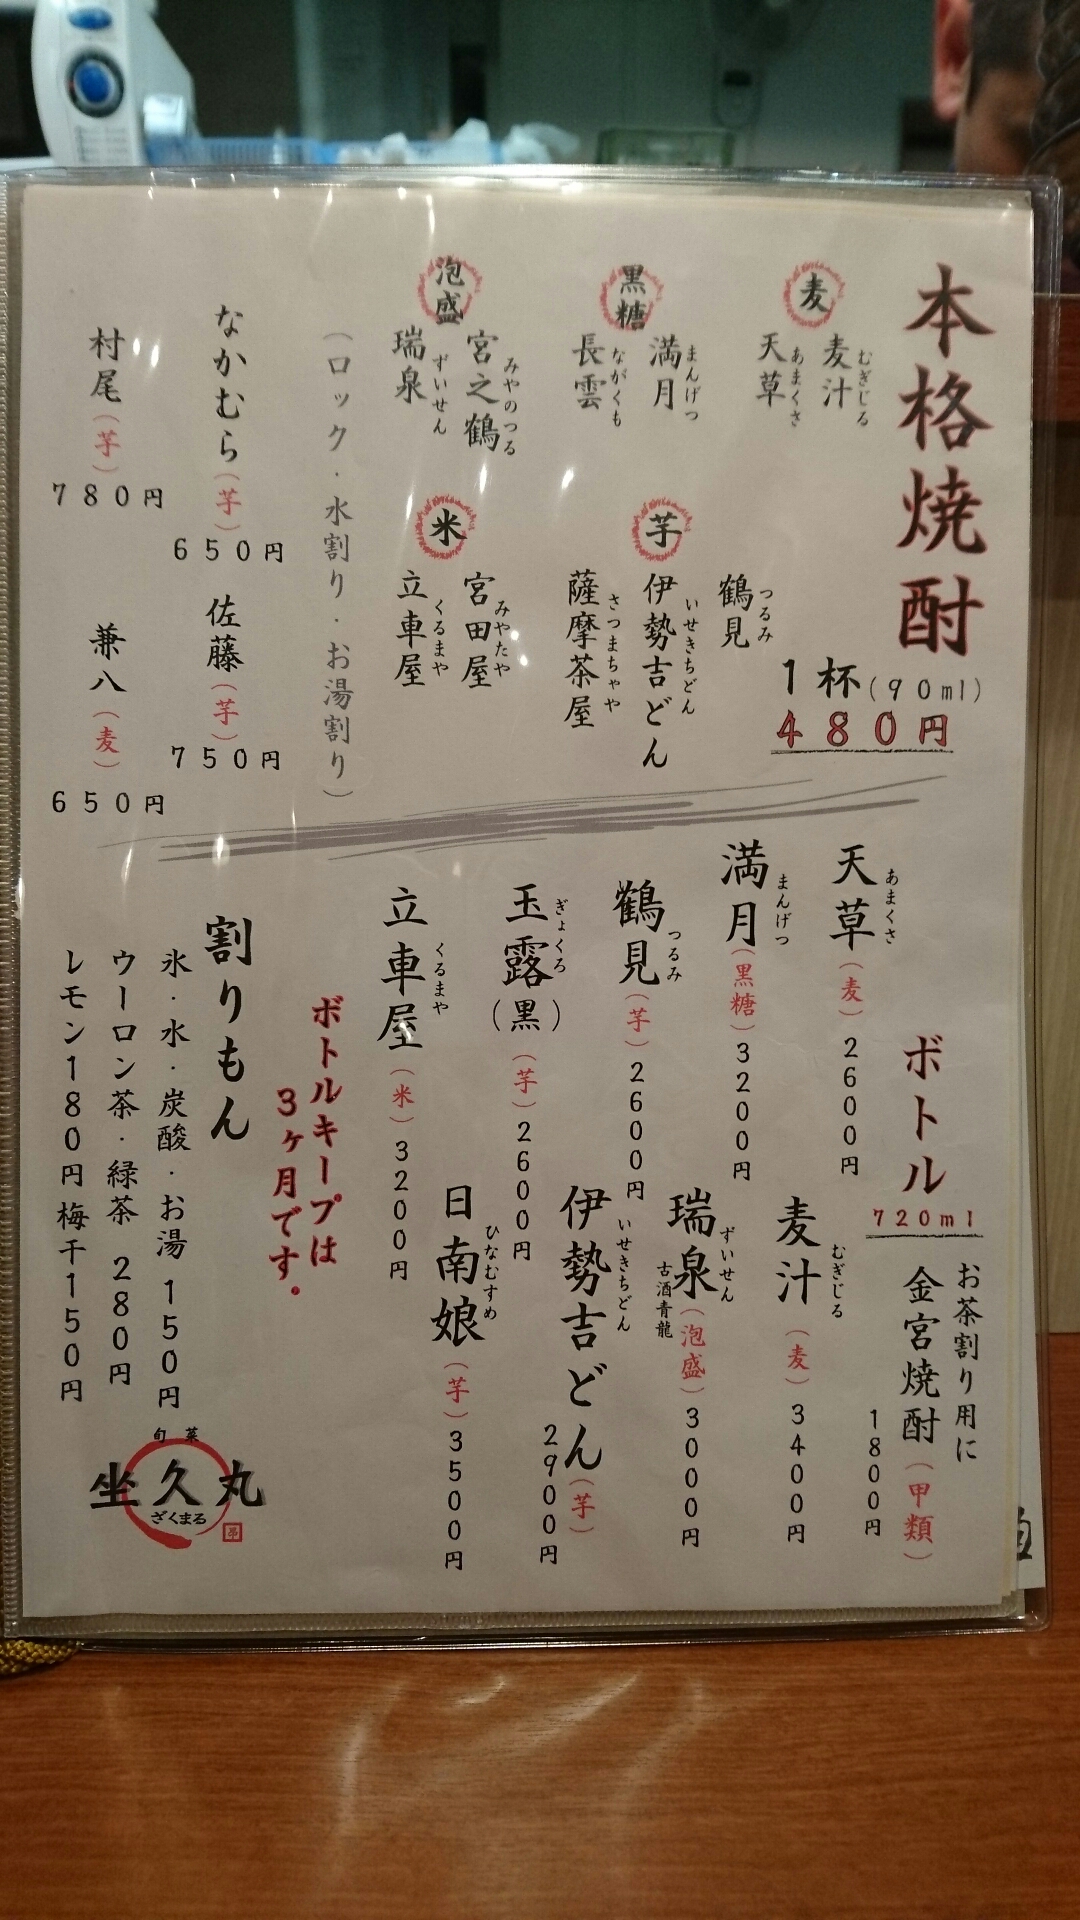 本格焼酎
1杯(90ml)
480円
麦
麦汁 むぎじる
天草 あまくさ
黒糖
満月 まんげつ
長雲 ながくも
泡盛
宮之鶴 みやのつる
瑞泉 ずいせん
芋
鶴見 つるみ
伊勢吉どん いせきちどん
薩摩茶屋 さつまちゃや
米
宮田屋 みやたや
立車屋 くるまや
(ロック・水割り・お湯割り)
なかむら(芋)
650円
佐藤(芋)
750円
村尾(芋)
780円
兼八(麦)
650円
ボトル
720ml
お茶割り用に
金宮焼酎(甲類)
1800円
天草 あまくさ (麦)2600円
麦汁 むぎじる (麦)3400円
満月 まんげつ (黒糖)3200円
瑞泉 ずいせん (泡盛)3000円
古酒青龍
鶴見 つるみ (芋)2600円
伊勢吉どん いせきちどん (芋)
2900円
玉露(黒) ぎょくろ (芋)2600円
日南娘 ひなむすめ (芋)3500円
立車屋 くるまや (米)3200円
ボトルキープは
3ヶ月です。
割りもん
氷・水・炭酸・お湯 150円
ウーロン茶・緑茶 280円
レモン180円 梅干150円
旬菜
坐久丸
ざくまる